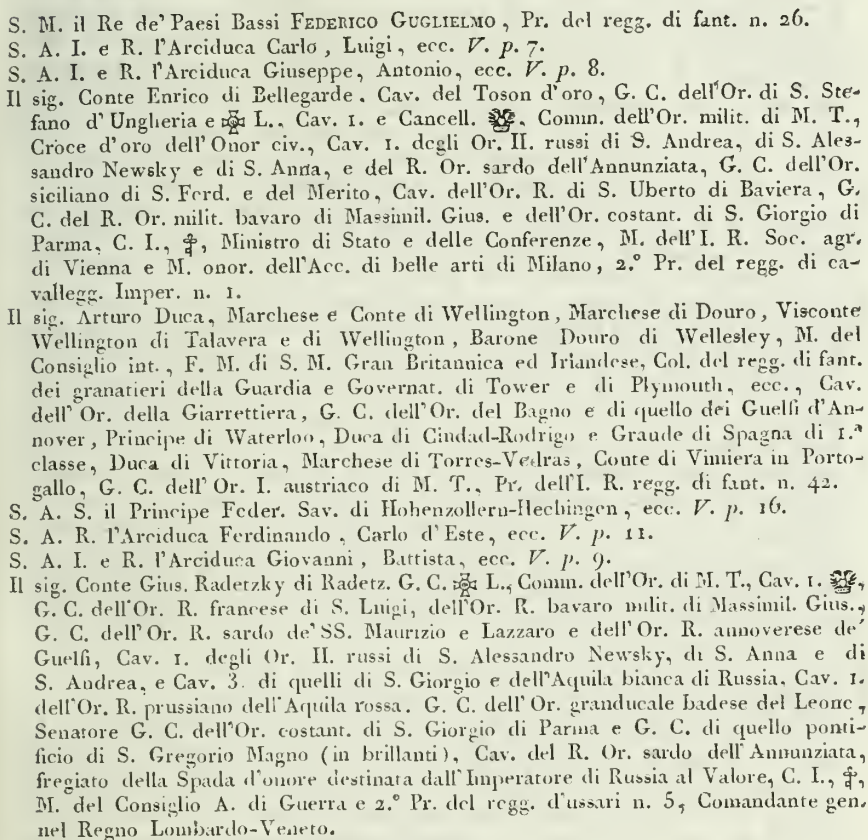 S. M. il Re de' Paesi Bassi FEDERICO GUGLIELMO, Pr. del regg. di fant. n. 26.
S. A. I. e R. l'Arciduca Carlo, Luigi, ecc. V. p. 7.
S. A. I. e R. l'Arciduca Giuseppe, Antonio, ecc. V. p. 8.
Il sig. Conte Enrico di Bellegarde. Cav. del Toson d'oro, G. C. dell'Or. di S. Ste-
fano d'Ungheria e L., Cav. 1. e Cancell. , Comm. dell'Or. milit. di M. T.,
Croce d'oro dell'Onor civ., Cav. 1. degli Or. II. russi di S. Andrea, di S. Ales-
sandro Newsky e di S. Anna, e del R. Or. sardo dell'Annunziata, G. C. dell'Or.
siciliano di S. Ferd. e del Merito, Cav. dell'Or. R. di S. Uberto di Baviera, G.
C. del R. Or. milit. bavaro di Massimil. Gius. e dell'Or. costant. di S. Giorgio di
Parma, C. I., , Ministro di Stato e delle Conferenze, M. dell'I. R. Soc. agr.
di Vienna e M. onor. dell'Acc. di belle arti di Milano, 2.° Pr. del regg. di ca-
vallegg. Imper. n. 1.
Il sig. Arturo Duca, Marchese e Conte di Wellington, Marchese di Douro, Visconte
Wellington di Talavera e di Wellington, Barone Douro di Wellesley, M. del
Consiglio int., F. M. di S. M. Gran Britannica ed Irlandese, Col. del regg. di fant.
dei granatieri della Guardia e Governat. di Tower e di Plymouth, ecc., Cav.
dell'Or. della Giarrettiera, G. C. dell'Or. del Bagno e di quello dei Guelfi d'An-
nover, Principe di Waterloo, Duca di Ciudad-Rodrigo e Grande di Spagna di 1.ª
classe, Duca di Vittoria, Marchese di Torres-Vedras, Conte di Vimiera in Porto-
gallo, G. C. dell'Or. I. austriaco di M. T., Pr. dell'I. R. regg. di fant. n. 42.
S. A. S. il Principe Feder. Sav. di Hohenzollern-Hechingen, ecc. V. p. 16.
S. A. R. l'Arciduca Ferdinando, Carlo d'Este, ecc. V. p. 11.
S. A. I. e R. l'Arciduca Giovanni, Battista, ecc. V. p. 9.
Il sig. Conte Gius. Radetzky di Radetz. G. C. L., Comm. dell'Or. di M. T., Cav. 1. ,
G. C. dell'Or. R. francese di S. Luigi, dell'Or. R. bavaro milit. di Massimil. Gius.,
G. C. dell'Or. R. sardo de' SS. Maurizio e Lazzaro e dell'Or. R. annoverese de'
Guelfi, Cav. 1. degli Or. II. russi di S. Alessandro Newsky, di S. Anna e di
S. Andrea, e Cav. 3. di quelli di S. Giorgio e dell'Aquila bianca di Russia, Cav. 1.
dell'Or. R. prussiano dell'Aquila rossa. G. C. dell'Or. granducale badese del Leone,
Senatore G. C. dell'Or. costant. di S. Giorgio di Parma e G. C. di quello ponti-
ficio di S. Gregorio Magno (in brillanti), Cav. del R. Or. sardo dell'Annunziata,
fregiato della Spada d'onore destinata dall'Imperatore di Russia al Valore, C. I., ,
M. del Consiglio A. di Guerra e 2.° Pr. del regg. d'ussari n. 5, Comandante gen.
nel Regno Lombardo-Veneto.